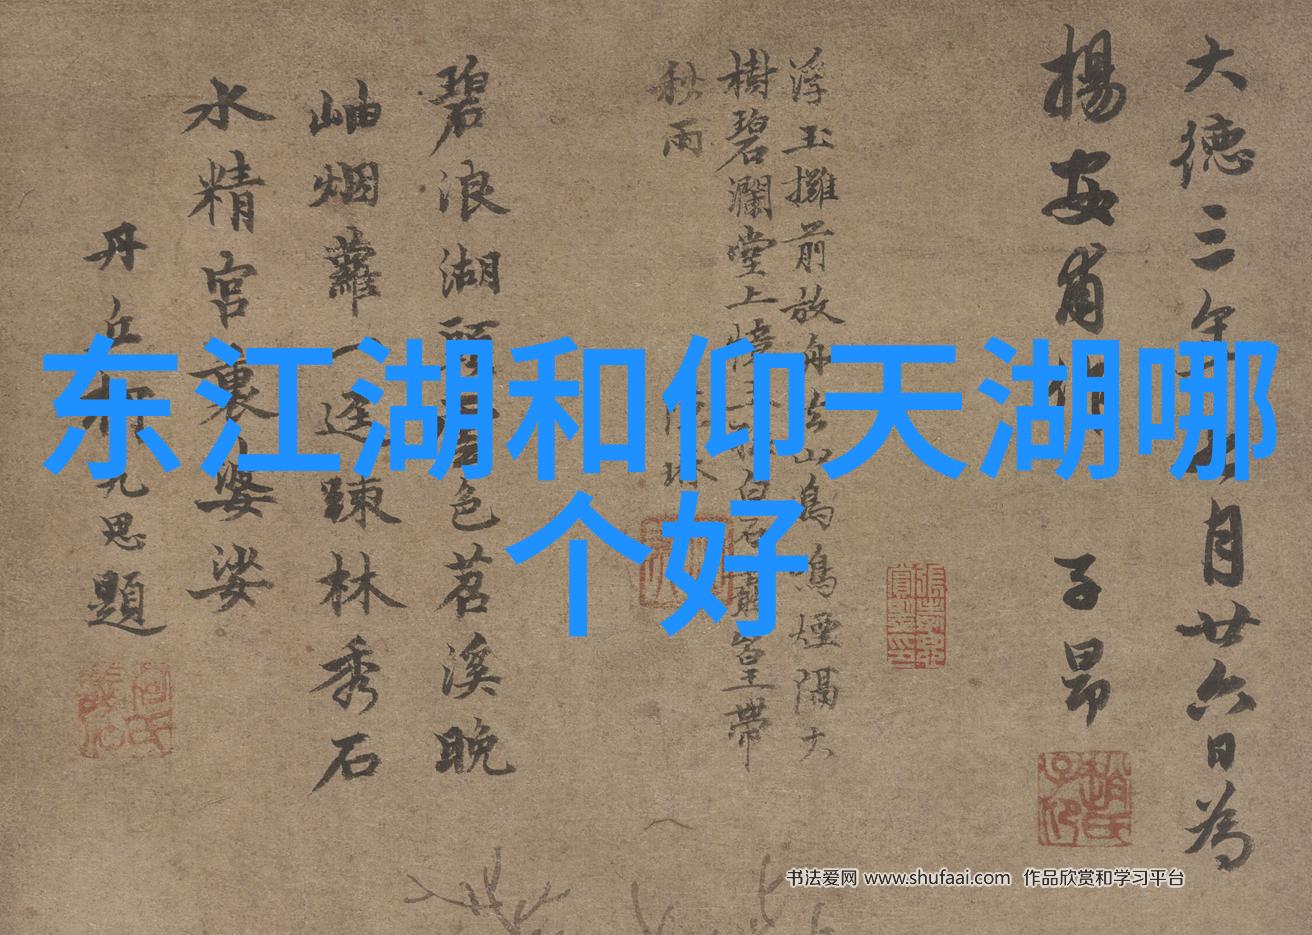 东江湖和仰天湖哪
个好
大德三年月廿六日為
揚安甫
子昂
浮玉攤前放舟山鳥鳴煙隔大
樹碧瀾堂上憶皇帶
秋雨
碧浪湖頭色苕溪晚
岫烟蘿一逕踈林秀石
水精宮裏婆娑
丹丘柯九思題
趙氏子昂
书法爱网 www.shufaai.com 作品欣赏和学习平台